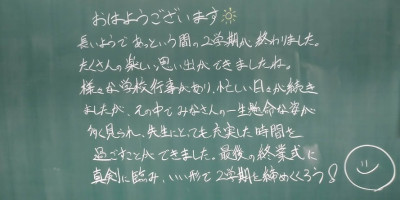 おはようございます
長いようであっという間の2学期が終わりました。
たくさんの楽しい思い出ができましたね。
様々な学校行事があり、忙しい日々が続き
ましたが、その中でみなさんの一生懸命な姿が
多く見られ、先生にとっても充実した時間を
過ごすことができました。最後の終業式に
真剣に臨み、いい形で2学期を締めくくろう!